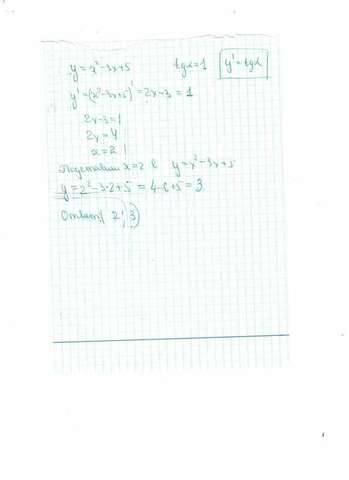 y = x² - 3x + 5 tgα = 1 y' = tgα
y' = (x² - 3x + 5)' = 2x - 3 = 1
2x - 3 = 1
2x = 4
x = 2
Подставим x = 2 в y = x² - 3x + 5
y = 2² - 3·2 + 5 = 4 - 6 + 5 = 3
Ответ: (2; 3)